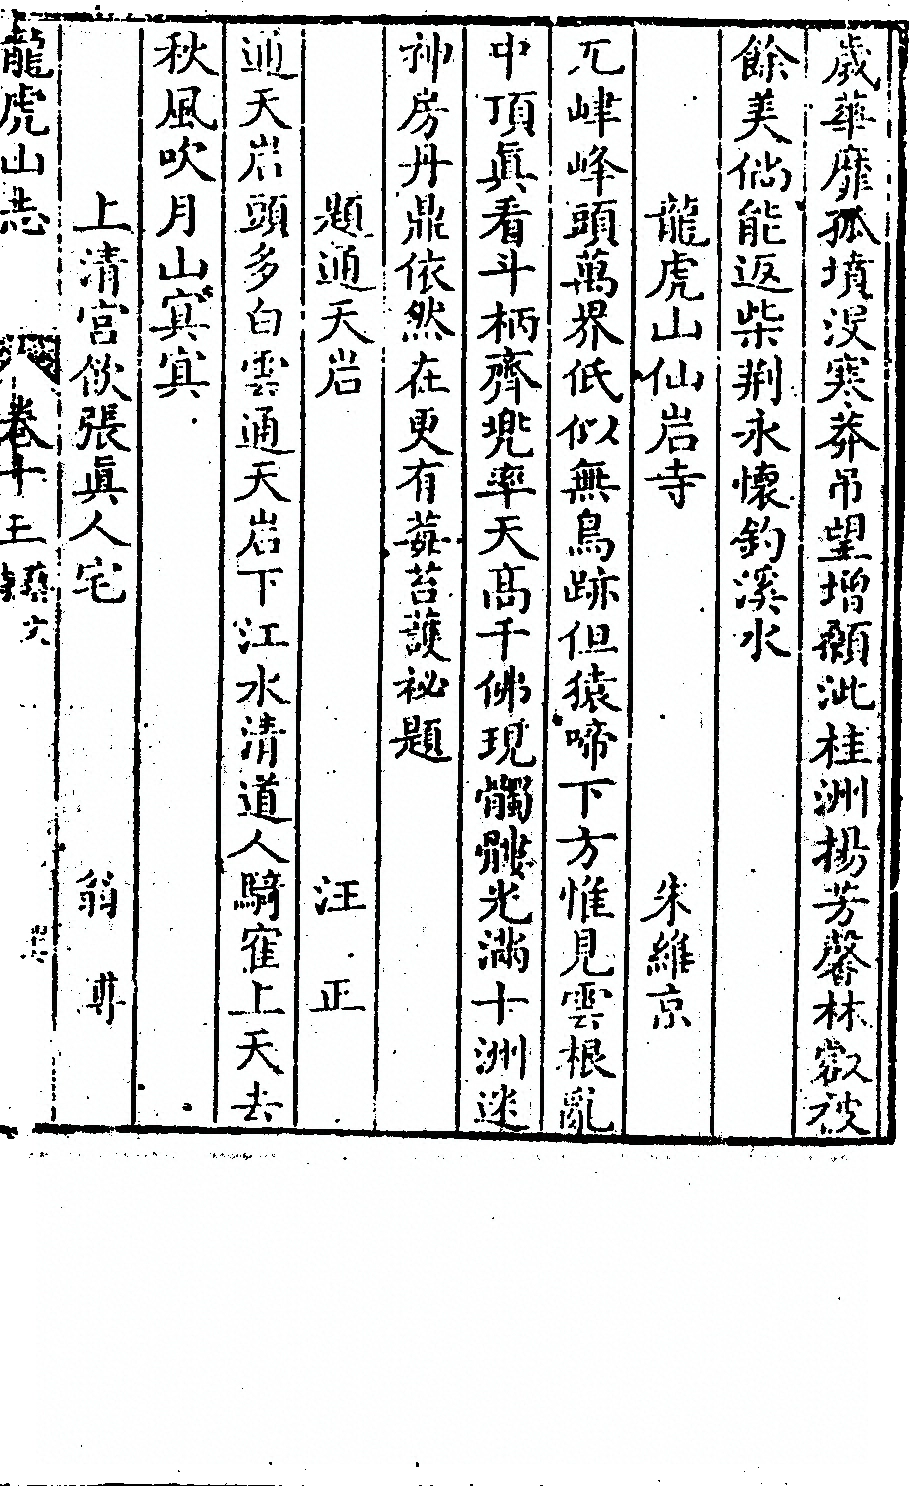 歲華靡孤墳沒寒莽吊望增顙泚桂洲揚芳馨林壑被
餘美倘能返柴荆永懷釣溪水
龍虎山仙岩寺 朱維京
兀峍峰頭萬界低似無鳥跡但猿啼下方惟見雲根亂
中頂眞看斗柄齊兠率天高千佛現髑髏光滿十洲迷
神房丹鼎依然在更有莓苔護祕題
題通天岩 汪正
通天岩頭多白雲通天岩下江水清道人騎寉上天去
秋風吹月山寘寘
上清宮飲張眞人宅 翁尊
龍虎山志 卷十 藝文